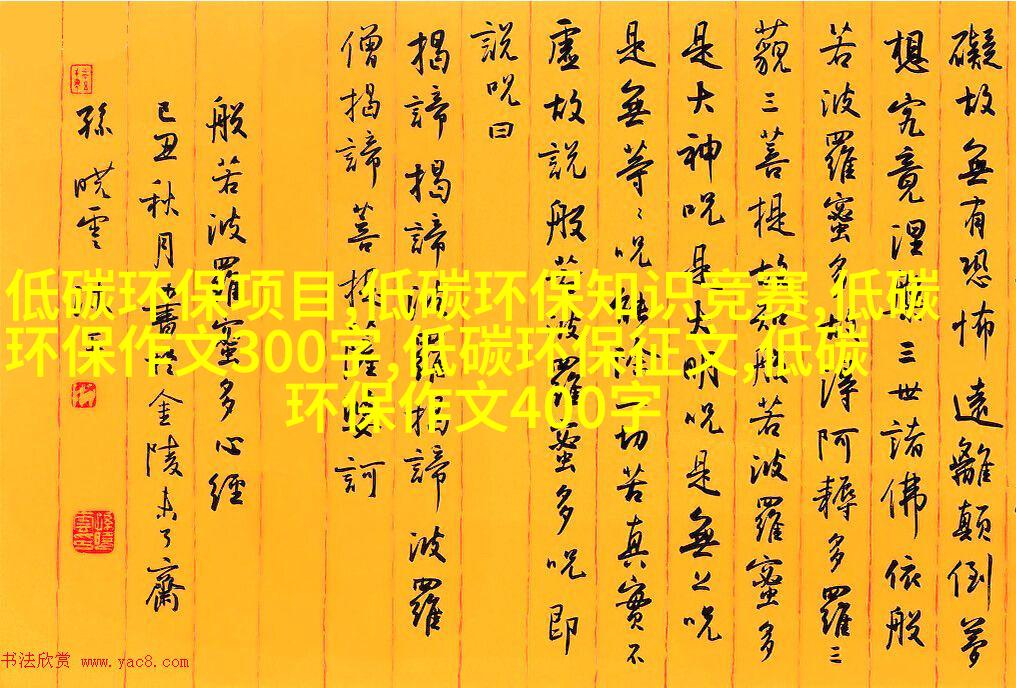 礙故無有恐怖遠離顛倒夢
想究竟涅槃三世諸佛依般
若波羅蜜多故得阿耨多羅三
藐三菩提故知般若波羅蜜多
是大神呪是大明呪是無上呪
是無等〻呪能除一切苦真實不
虛故說般若波羅蜜多呪即
說呪曰
揭諦揭諦波羅揭諦波羅
僧揭諦菩提薩婆訶
般若波羅蜜多心經
己丑秋月書於金陵未了齋
孫曉雲
低碳环保项目,低碳环保知识竞赛,低碳
环保作文300字,低碳环保征文,低碳
环保作文400字
书法欣赏 www.yac8.com